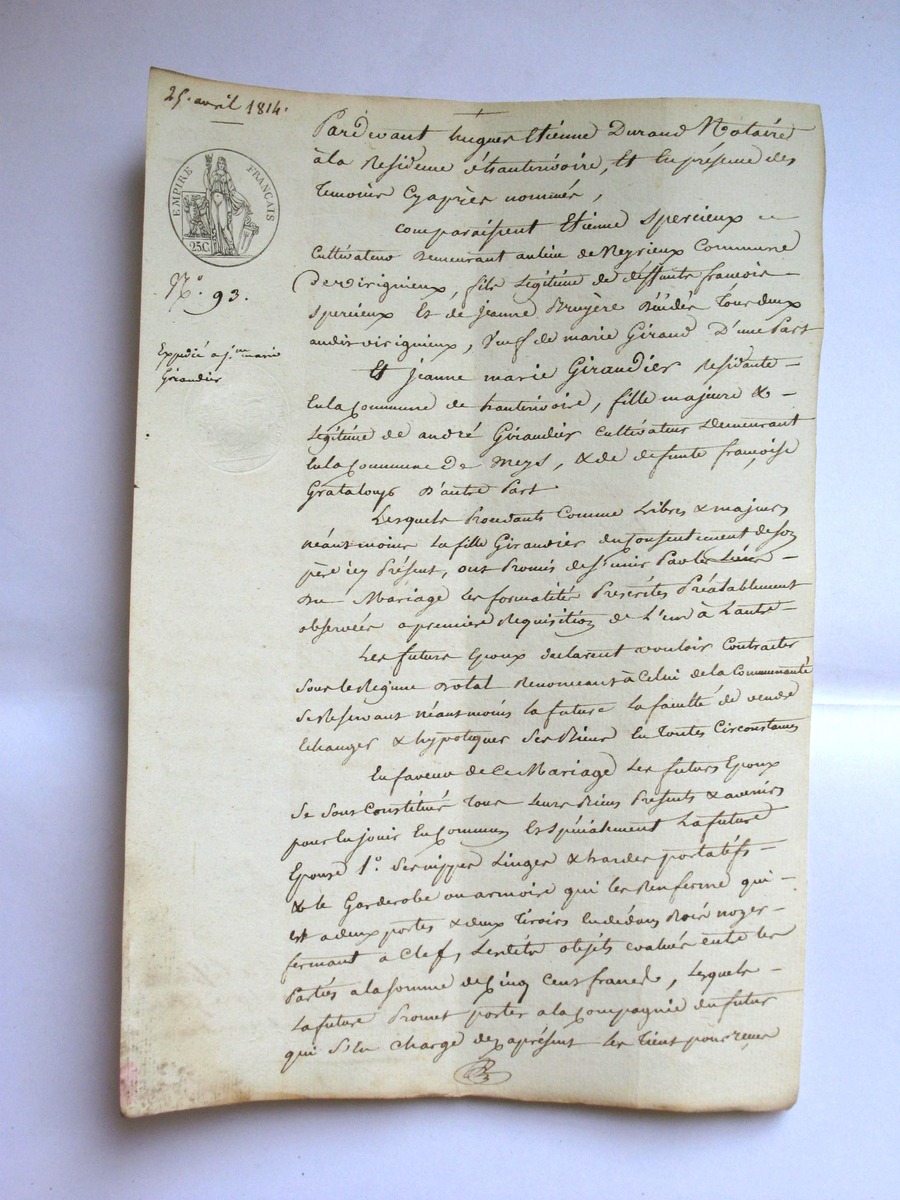 25. avril 1814.
EMPIRE FRANÇAIS
25C.
N.° 93.
Expédié a j.ne marie
Giraudier
Pardevant hugues Etienne Durand Notaire
à la Residence d'hauterivoire, Et En présence des
Temoins Cy après nommés,
comparaissent Etienne Spercieux
Cultivateur Demeurant au lieu de Neyrieux Commune
De virignieux, fils Legitime de deffunts françois
Spercieux Et de jeanne Bruyère Décédés Tous deux
audit virignieux, veuf de marie Giraud D'une Part
Et jeanne marie Giraudier Residante
En la Commune de hauterivoire, fille majeure &
Legitime de andré Giraudier Cultivateur Demeurant
En la Commune de meys, & de defunte françoise
Grataloup D'autre Part
Lesquels Procédants Comme Libres & majeurs
néantmoins La fille Giraudier du Consentement de son
père icy Présent, ont Promis de S'unir Par les Liens
Du Mariage les formalités Prescrites Préalablement
observées a premiere Requisition de L'un à Lautre
Les futurs Epoux declarent vouloir Contracter
Sous le Regime Dotal Renonceant à Celui de la Communauté
Se Reservant néantmoins la future La faculté de vendre
Echanger & hypotequer Ses Biens En Toutes Circonstances
En faveur de Ce Mariage Les futurs Epoux
Se Sont Constitués Tous Leurs Biens Présents & avenirs
pour En jouir En Commun Et Spécialement La future
Epouse 1.° Ses nippes Linges & hardes portatifs
& le Garderobe ou armoire qui les Renferme qui
Est a deux portes & deux Tiroirs En dedans Bois noyer
fermant a Clef, Lesdits objets evalués entre les
Parties a la somme de Cinq Cens francs, Lesquels
La future Promet porter a la Compagnie du futur
qui S'En Charge dez aprésent Les Tient pour reçus